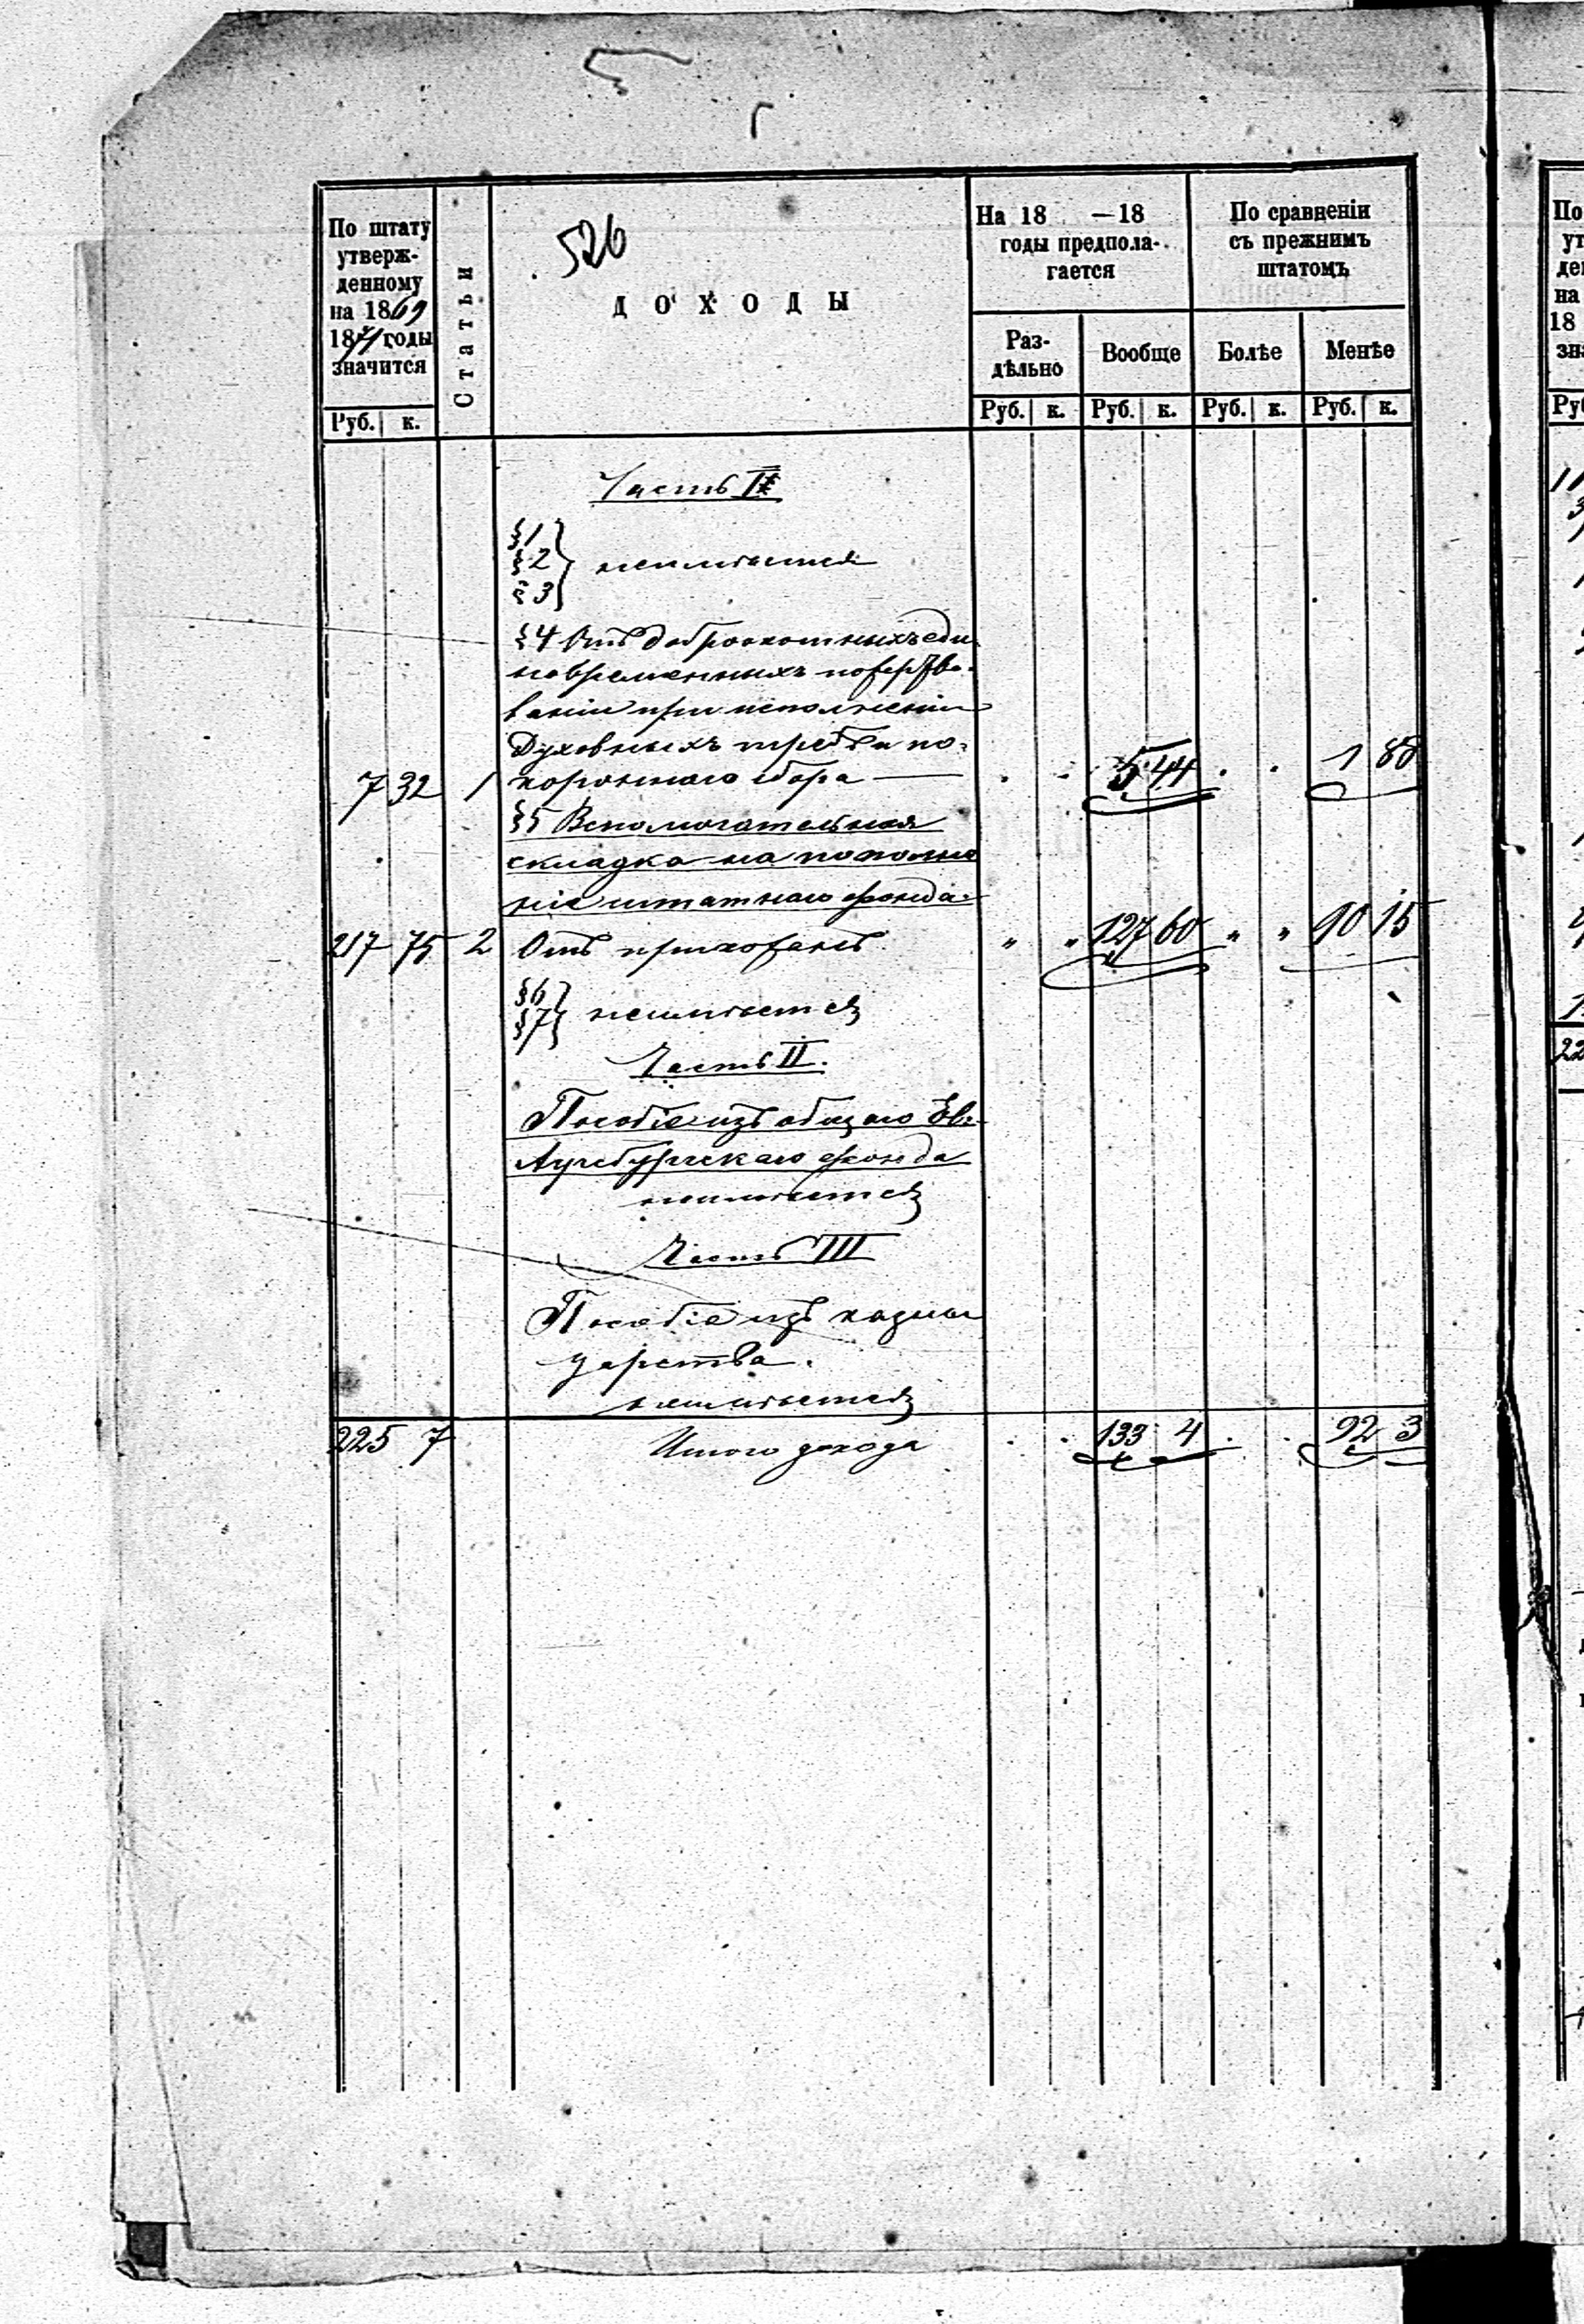 По штату
утверж-
денному
на 1869
1871 годы
значится
Руб. к.
Статьи
526
ДОХОДЫ
На 18 —18
годы предпола-
гается
Раз-
дѣльно
Вообще
По сравненіи
съ прежнимъ
штатомъ
Болѣе
Менѣе
Руб. к. Руб. к. Руб. к. Руб. к.
Часть I
§1
§2 } неимѣется
§3
§4 Отъ доброхотныхъ еди
новременныхъ пожертво-
ваніи при исполненіи
Духовныхъ требъ и по-
7 32 1 хороннаго сбора — 5 44 1 88
§5 Вспомогательная
складка на пополне
ніе штатнаго фонда
217 75 2 Отъ прихожанъ " " 127 60 " " 90 15
§6
§7 } неимѣется
Часть II.
Пособіе изъ общаго Ев.
Аугсбургскаго фонда
неимѣется
Часть III
Пособіе изъ казны
царства.
неимѣется
225 7 Итого дохода 133 4 92 3
По
на
18
Руб
22